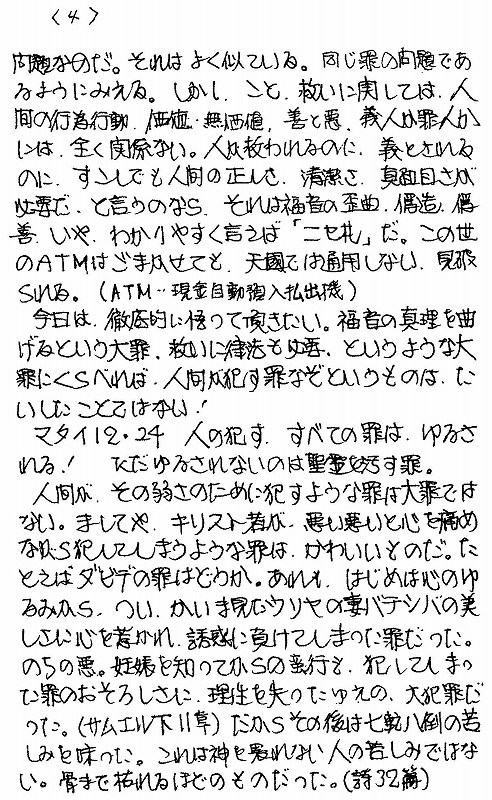 〈4〉
問題なのだ。それはよく似ている。同じ罪の問題であ
るようにみえる。しかし、こと、救いに関しては、人
間の行為行動、価値・無価値、善と悪、義人か罪人か
には、全く関係ない。人が救われるのに、義とされる
のに、すこしでも人間の正しさ、清潔さ、真面目さが
必要だ、と言うのなら、それは福音の歪曲、偽造、偽
善、いや、わかりやすく言えば「ニセ札」だ。この世
のATMはごまかせても、天國では通用しない、見破
られる。(ATM‥現金自動預入払出機)
今日は、徹底的に悟って頂きたい。福音の真理を曲
げるという大罪、救いに律法も必要、というような大
罪にくらべれば、人間が犯す罪なぞというものは、た
いしたことではない!
マタイ12・24 人の犯す、すべての罪は、ゆるさ
れる! ただゆるされないのは聖霊を汚す罪。
人間が、その弱さのために犯すような罪は大罪では
ない。ましてや、キリスト者が、悪い悪いと心を痛め
ながら犯してしまうような罪は、かわいいものだ。た
とえばダビデの罪はどうか。あれも、はじめは心のゆ
るみから、つい、かいま見たウリヤの妻バテシバの美
しさに心を惹かれ、誘惑に負けてしまった罪だった。
のちの悪。妊娠を知ってからの蛮行も、犯してしまっ
た罪のおそろしさに、理性を失ったゆえの、大犯罪だ
った。(サムエル下11章)だからその後は七転八倒の苦
しみを味った。これは神を畏れない人の苦しみではな
い。骨まで枯れるほどのものだった。(詩32篇)